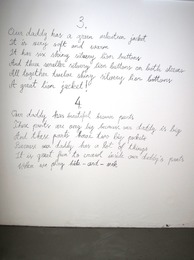 3.
Our daddy has a green winter jacket
It is very soft and warm
It has six shiny silvery lion buttons
And three smaller silvery lion buttons on both sleeves
All together twelve shiny silvery lion buttons
A great lion jacket!
4.
Our daddy has beautiful brown pants
These pants are very big because our daddy is big
And these pants have two big pockets
Because our daddy has a lot of things
It is great fun to crawl inside our daddy's pants
When we play hide-and-seek